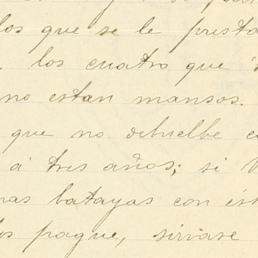 los que se le presta
, los cuatro que
no estan mansos.
que no debuelbe
á tres años; si V
mas batayas con és
los pague, sirvase